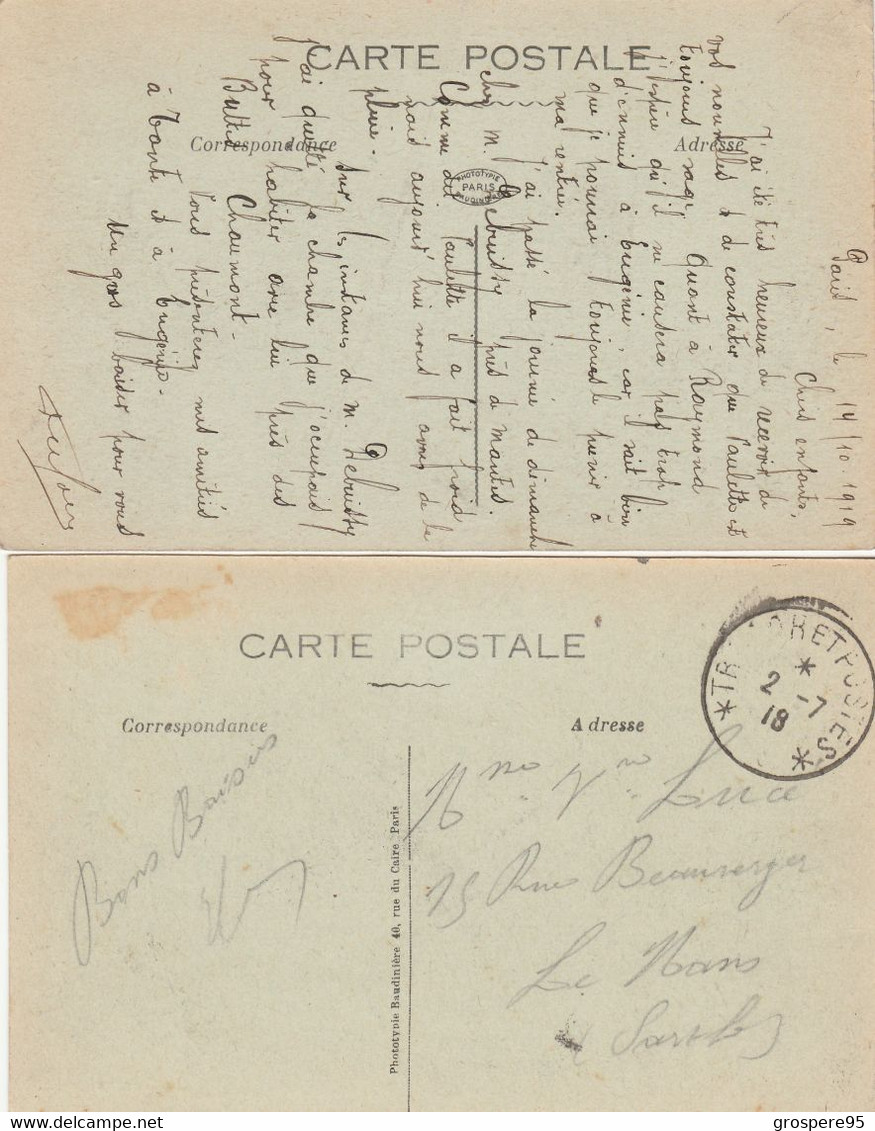 CARTE POSTALE
Correspondance
Adresse
PHOTOTYPIE
PARIS
BAUDINIÈRE
Paris, le 14/10 1919
Chers enfants,
J'ai été très heureux de recevoir de
vos nouvelles & de constater que Paulette est
toujours sage. Quant à Raymond
j'espère qu'il ne causera pas trop
d'ennuis à Eugénie, car il sait bien
que je pourrai toujours le punir à
ma rentrée.
J'ai passé la journée de dimanche
chez M. Lebuissy près de Mantes.
Comme dit Paulette il a fait froid
mais aujourd'hui nous avons de la
pluie.
Sur les instances de M. Lebuissy
j'ai quitté la chambre que j'occupais
pour habiter avec lui près des
Buttes Chaumont.
Vous présenterez mes amitiés
à Tonton et à Eugénie.
Un gros baiser pour vous
CARTE POSTALE
TRESOR ET POSTES
2 -7
18
Correspondance
Adresse
Bons Baisers
Mme Vve Luce
15 Rue Beauverger
Le Mans
(Sarthe)
Phototypie Baudinière 40, rue du Caire Paris
grospere95